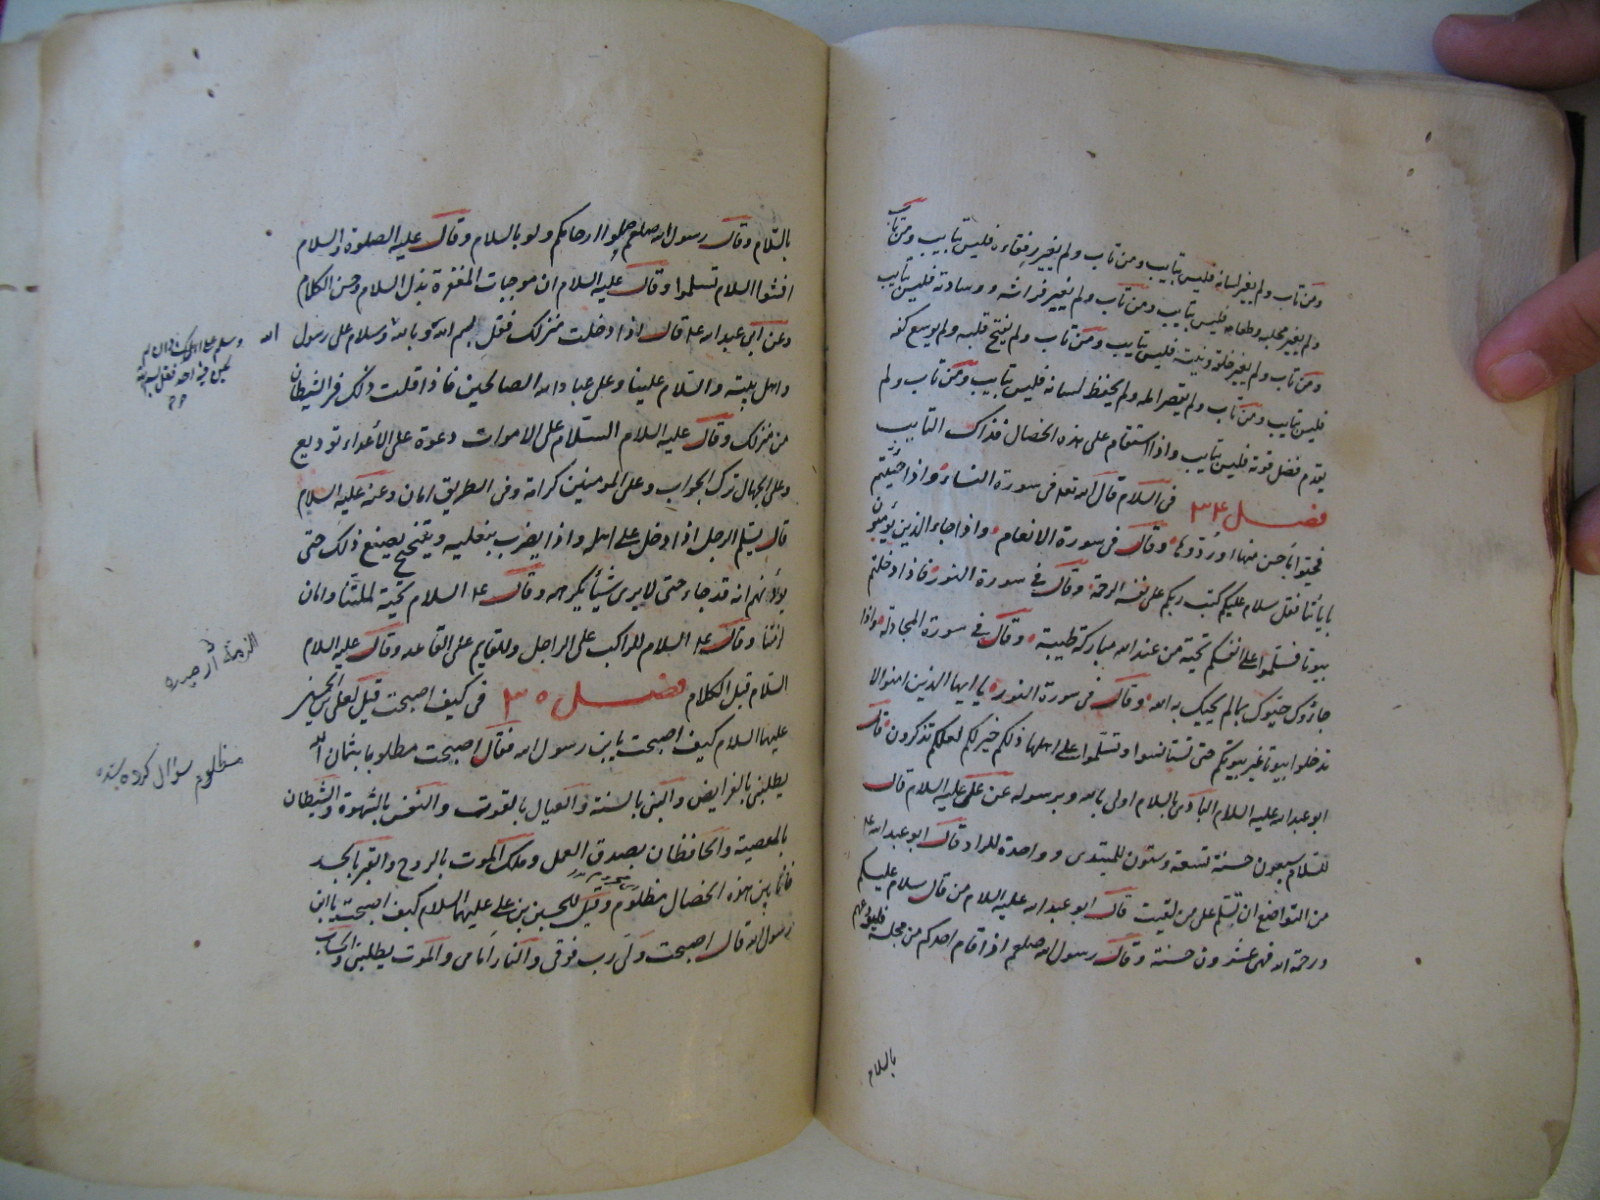 ومن تاب ولم يغير لسانه فليس بتايب ومن تاب ولم يغير رفقاءه فليس بتايب ومن تاب
ولم يغير مجلسه وطعامه فليس بتايب ومن تاب ولم يغير فراشه ووسادته فليس بتايب
ومن تاب ولم يغير خلقه ونيته فليس بتايب ومن تاب ولم يفتح قلبه ولم يوسع كفه
فليس بتايب ومن تاب ولم يقصر امله ولم يحفظ لسانه فليس بتايب ومن تاب ولم
يقدم فضل قوته فليس بتايب واذا استقام على هذه الخصال فذاك التايب
فصل ٣٤ فى السلام قال الله تعه فى سورة النساء واذا حييتم
فحيوا بأحسن منها او ردوها وقال فى سورة الانعام واذا جاءك الذين يؤمنون
بآياتنا فقل سلام عليكم كتب ربكم على نفسه الرحمة وقال في سورة النور فاذا دخلتم
بيوتا فسلموا على انفسكم تحية من عند الله مباركة طيبة وقال في سورة المجادلة واذا
جاؤوك حيوك بما لم يحيك به الله وقال فى سورة النور يا ايها الذين امنوا لا
تدخلوا بيوتا غير بيوتكم حتى تستانسوا وتسلموا على اهلها ذلكم خير لكم لعلكم تذكرون قال
ابو عبد الله عليه السلام البادى بالسلام اولى بالله وبرسوله عن على عليه السلام قال
للسلام سبعون حسنة تسعة وستون للمبتدى وواحدة للراد قال ابو عبد الله ع
من التواضع ان تسلم على من لقيت قال ابو عبد الله عليه السلام من قال سلام عليكم
ورحمة الله فهى عشرون حسنة وقال رسول الله صلعم اذا قام احدكم من مجلسه فليودعهم
بالسلام
بالسلام وقال رسول الله صلعم صلوا ارحامكم ولو بالسلام وقال عليه الصلوة والسلام
افشوا السلام تسلموا وقال عليه السلام ان موجبات المغفرة بذل السلام وحسن الكلام
وعن ابى عبد الله ع قال اذا دخلت منزلك فقل بسم الله وبالله وسلام على رسول الله
وسلم على اهلك فان لم
يكن فيه احد فقل بسم الله
واهل بيته والسلام علينا وعلى عباد الله الصالحين فاذا قلت ذلك فر الشيطان
من منزلك وقال عليه السلام السلام على الاموات دعوة على الأعداء توديع
وعلى الجهال ترك الجواب وعلى المومنين كرامة وفى الطريق امان وعنه عليه السلام
قال يسلم الرجل اذا دخل على اهله واذا يضرب بنعليه ويتنحنح يصنع ذلك حتى
يؤذنهم انه قد جاء حتى لا يرى شيأ يكرهه وقال ع السلام تحية لملتنا وامان
لذمتنا وقال ع السلام للراكب على الراجل وللقايم على القاعد وقال عليه السلام
السلام قبل الكلام فصل ٣٥ فى كيف اصبحت قيل لعلى بن الحسين
عليهما السلام كيف اصبحت يا بن رسول الله فقال اصبحت مطلوبا بثمان الله
مظلوم سؤال كرده شده
يطلبنى بالفرايض والنبى بالسنة والعيال بالقوت والنفس بالشهوة والشيطان
بالمعصية والحافظان بصدق العمل وملك الموت بالروح والقبر بالجسد
فانا بين هذه الخصال مظلوم وقيل للحسين بن على عليهما السلام كيف اصبحت يا ابن
رسول الله قال اصبحت ولى رب فوقى والنار أمامى والموت يطلبنى والحساب